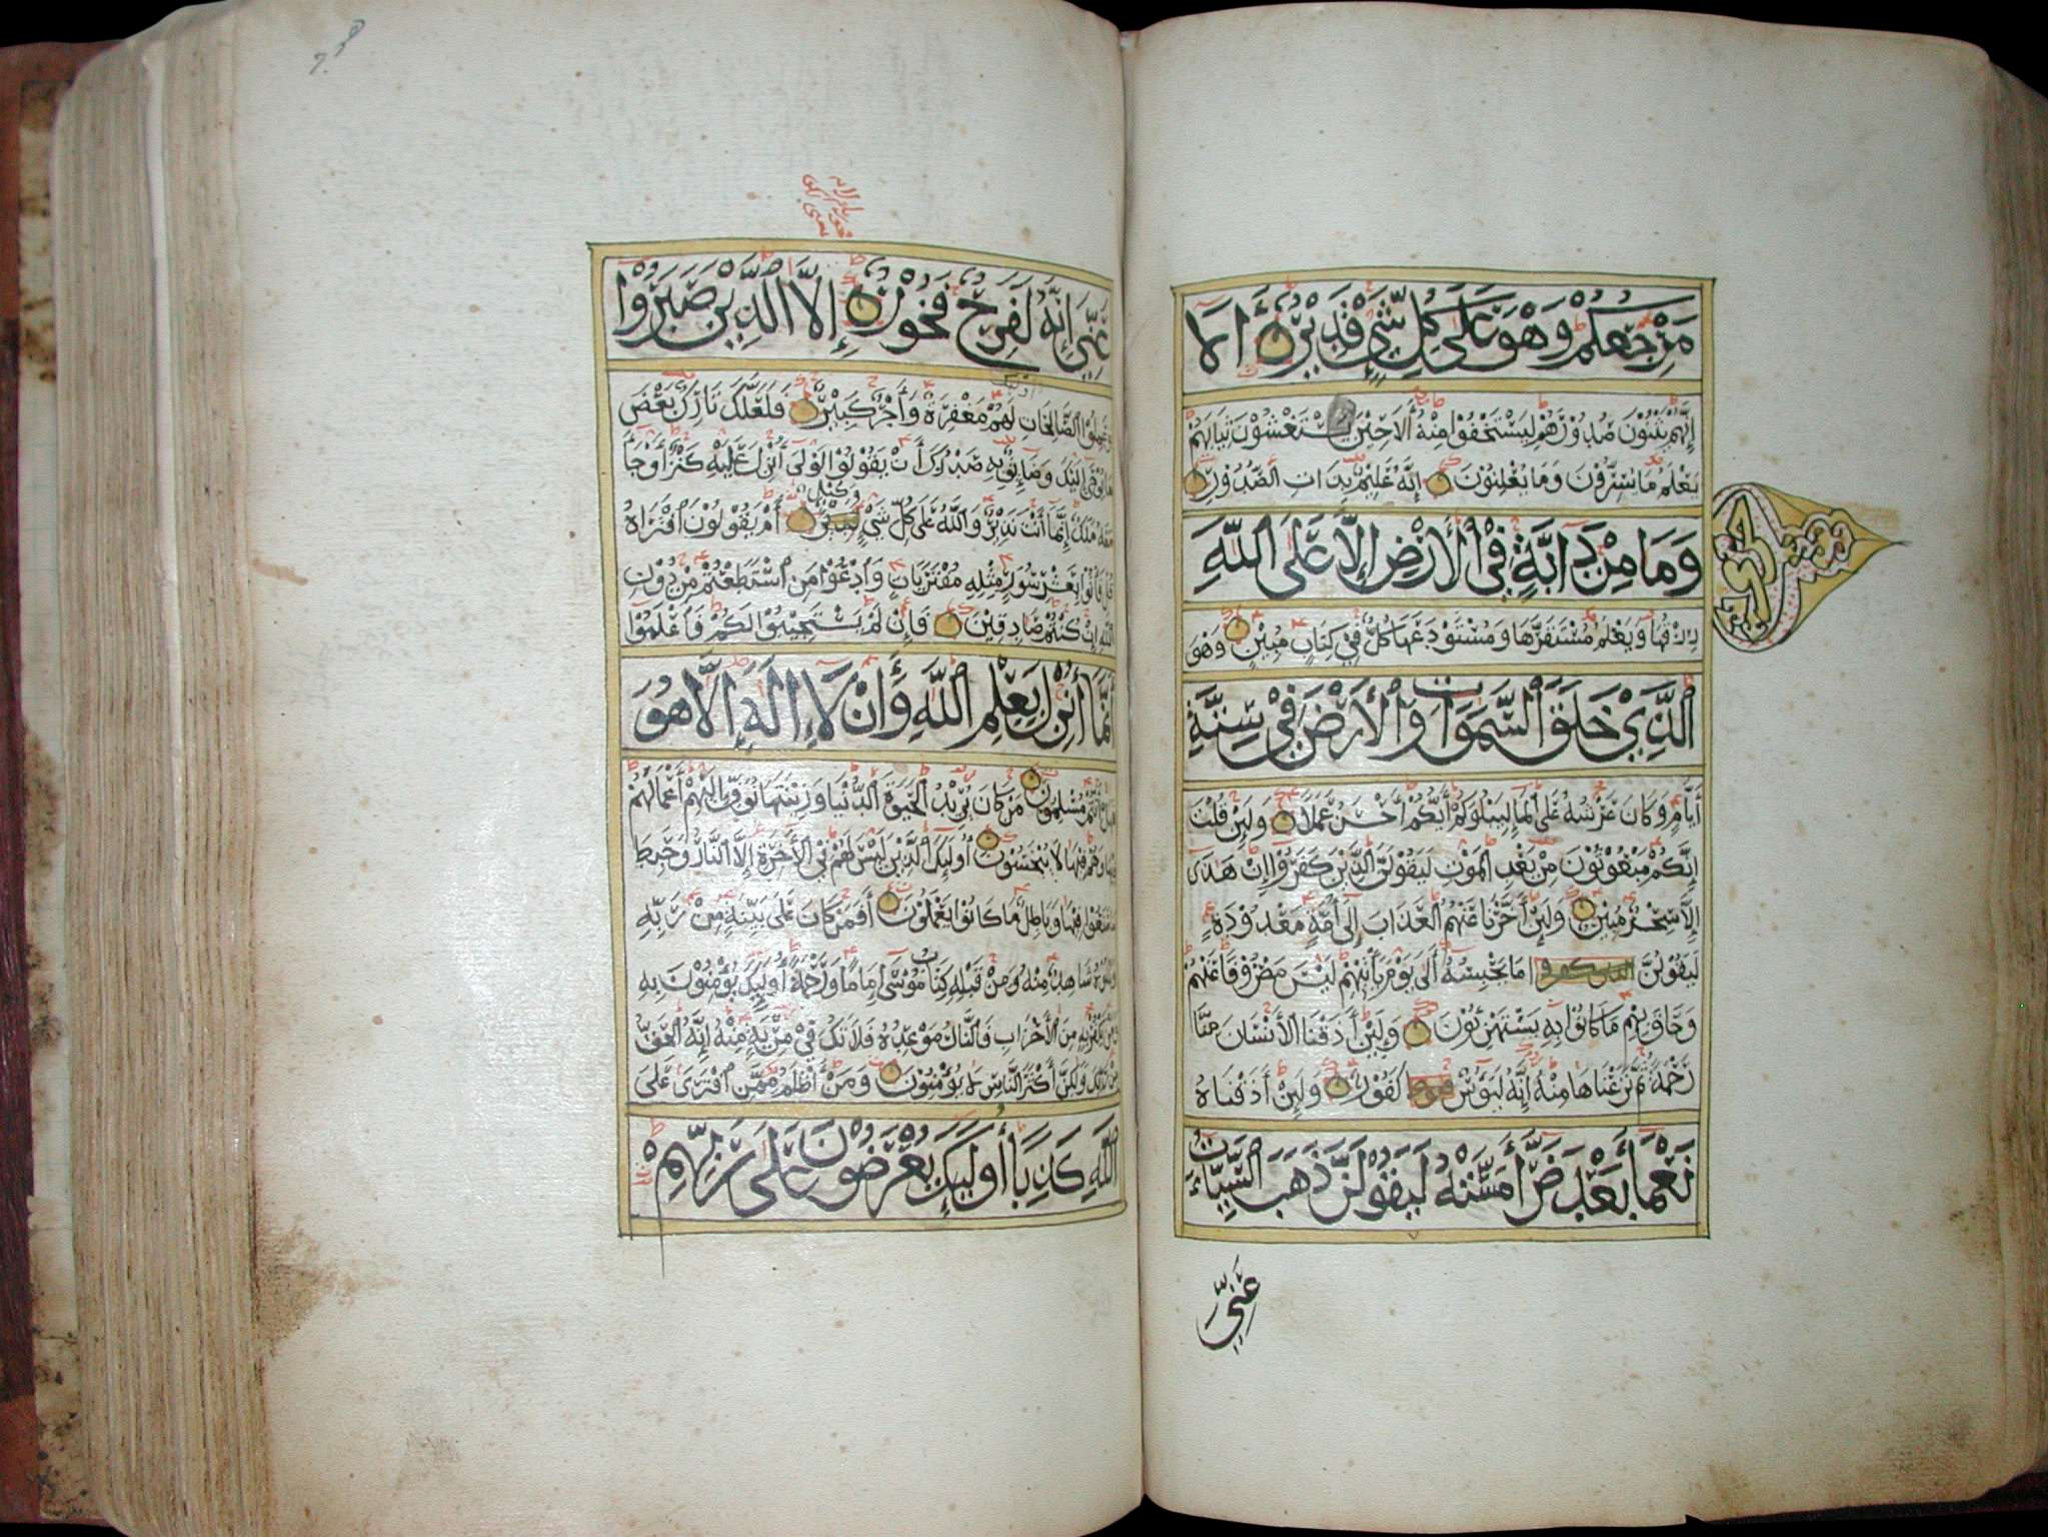 مرجعكم وهو على كل شيء قدير ألا
إنهم يثنون صدورهم ليستخفوا منه ألا حين يستغشون ثيابهم
يعلم ما يسرون وما يعلنون إنه عليم بذات الصدور
وما من دابة في الأرض إلا على الله
رزقها ويعلم مستقرها ومستودعها كل في كتاب مبين وهو
الذي خلق السموات والأرض في ستة
أيام وكان عرشه على الماء ليبلوكم أيكم أحسن عملا ولئن قلت
إنكم مبعوثون من بعد الموت ليقولن الذين كفروا إن هذا
إلا سحر مبين ولئن أخرنا عنهم العذاب إلى أمة معدودة
ليقولن ما يحبسه ألا يوم يأتيهم ليس مصروفا عنهم
وحاق بهم ما كانوا به يستهزئون ولئن أذقنا الإنسان منا
رحمة ثم نزعناها منه إنه ليؤس كفور ولئن أذقناه
نعماء بعد ضراء مسته ليقولن ذهب السيئات
عني
عني إنه لفرح فخور إلا الذين صبروا
وعملوا الصالحات أولئك لهم مغفرة وأجر كبير فلعلك تارك بعض
ما يوحى إليك وضائق به صدرك أن يقولوا لولا أنزل عليه كنز أو جاء
معه ملك إنما أنت نذير والله على كل شيء وكيل أم يقولون افتراه
قل فأتوا بعشر سور مثله مفتريات وادعوا من استطعتم من دون
الله إن كنتم صادقين فإن لم يستجيبوا لكم فاعلموا
أنما أنزل بعلم الله وأن لا إله إلا هو
فهل أنتم مسلمون من كان يريد الحيوة الدنيا وزينتها نوف إليهم أعمالهم
فيها وهم فيها لا يبخسون أولئك الذين ليس لهم في الآخرة إلا النار وحبط
ما صنعوا فيها وباطل ما كانوا يعملون أفمن كان على بينة من ربه
ويتلوه شاهد منه ومن قبله كتاب موسى إماما ورحمة أولئك يؤمنون به
ومن يكفر به من الأحزاب فالنار موعده فلا تك في مرية منه إنه الحق
من ربك ولكن أكثر الناس لا يؤمنون ومن أظلم ممن افترى على
الله كذبا أولئك يعرضون على ربهم